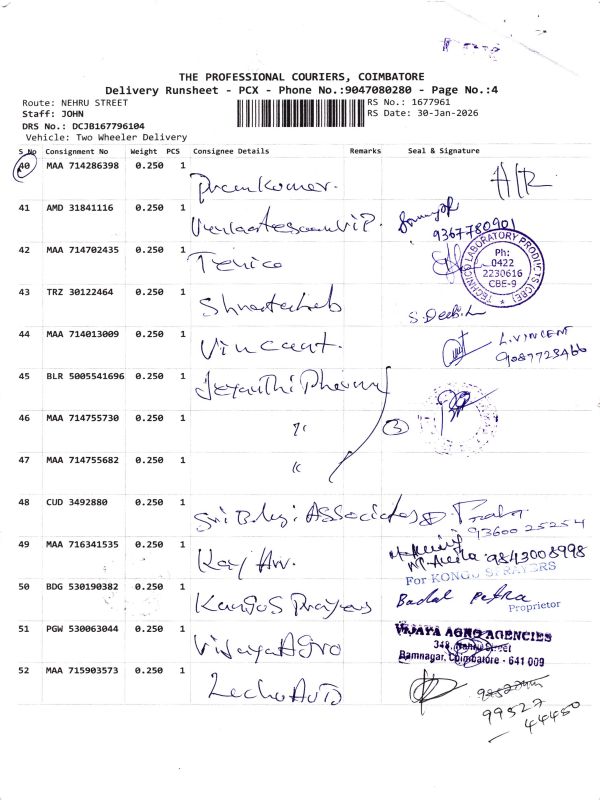 THE PROFESSIONAL COURIERS, COIMBATORE
Delivery Runsheet - PCX - Phone No.:9047080280 - Page No.:4
Route: NEHRU STREET
Staff: JOHN
DRS No.: DCJB167796104
Vehicle: Two Wheeler Delivery
RS No.: 1677961
RS Date: 30-Jan-2026
S No Consignment No Weight PCS Consignee Details Remarks Seal & Signature
40 MAA 714286398 0.250 1 Premkumar. H/R
41 AMD 31841116 0.250 1 9367780901
42 MAA 714702435 0.250 1 Tenico
TECHNICO LABORATORY PRODUCTS (CBE)
Ph:
0422
2230616
CBE-9
43 TRZ 30122464 0.250 1
44 MAA 714013009 0.250 1 Vincent. L.VINCENT
9087728466
45 BLR 5005541696 0.250 1 Jeyanthi Pharma
46 MAA 714755730 0.250 1 " 3
47 MAA 714755682 0.250 1 "
48 CUD 3492880 0.250 1 Sri Balaji Associates
93600 25254
49 MAA 716341535 0.250 1 9843008998
For KONGU SPRAYERS
50 BDG 530190382 0.250 1 Kongu Sprayers
Proprietor
51 PGW 530063044 0.250 1 Vijaya Agro
VIJAYA AGRO AGENCIES
348, Nehru Street
Ramnagar, Coimbatore - 641 009
52 MAA 715903573 0.250 1 Auto
99527
44450